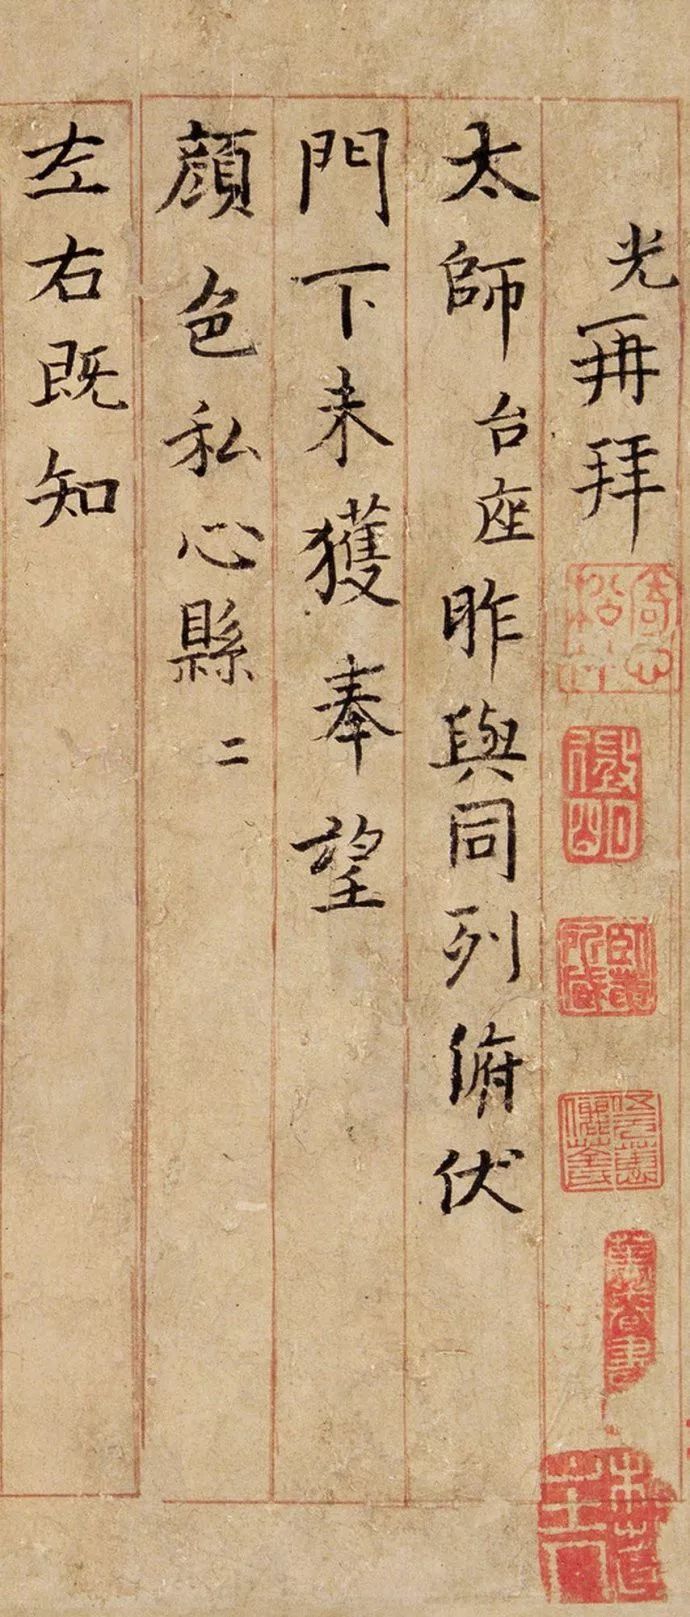 光再拜
太師台座昨與同列俯伏
門下未獲奉望
顏色私心縣二
左右既知